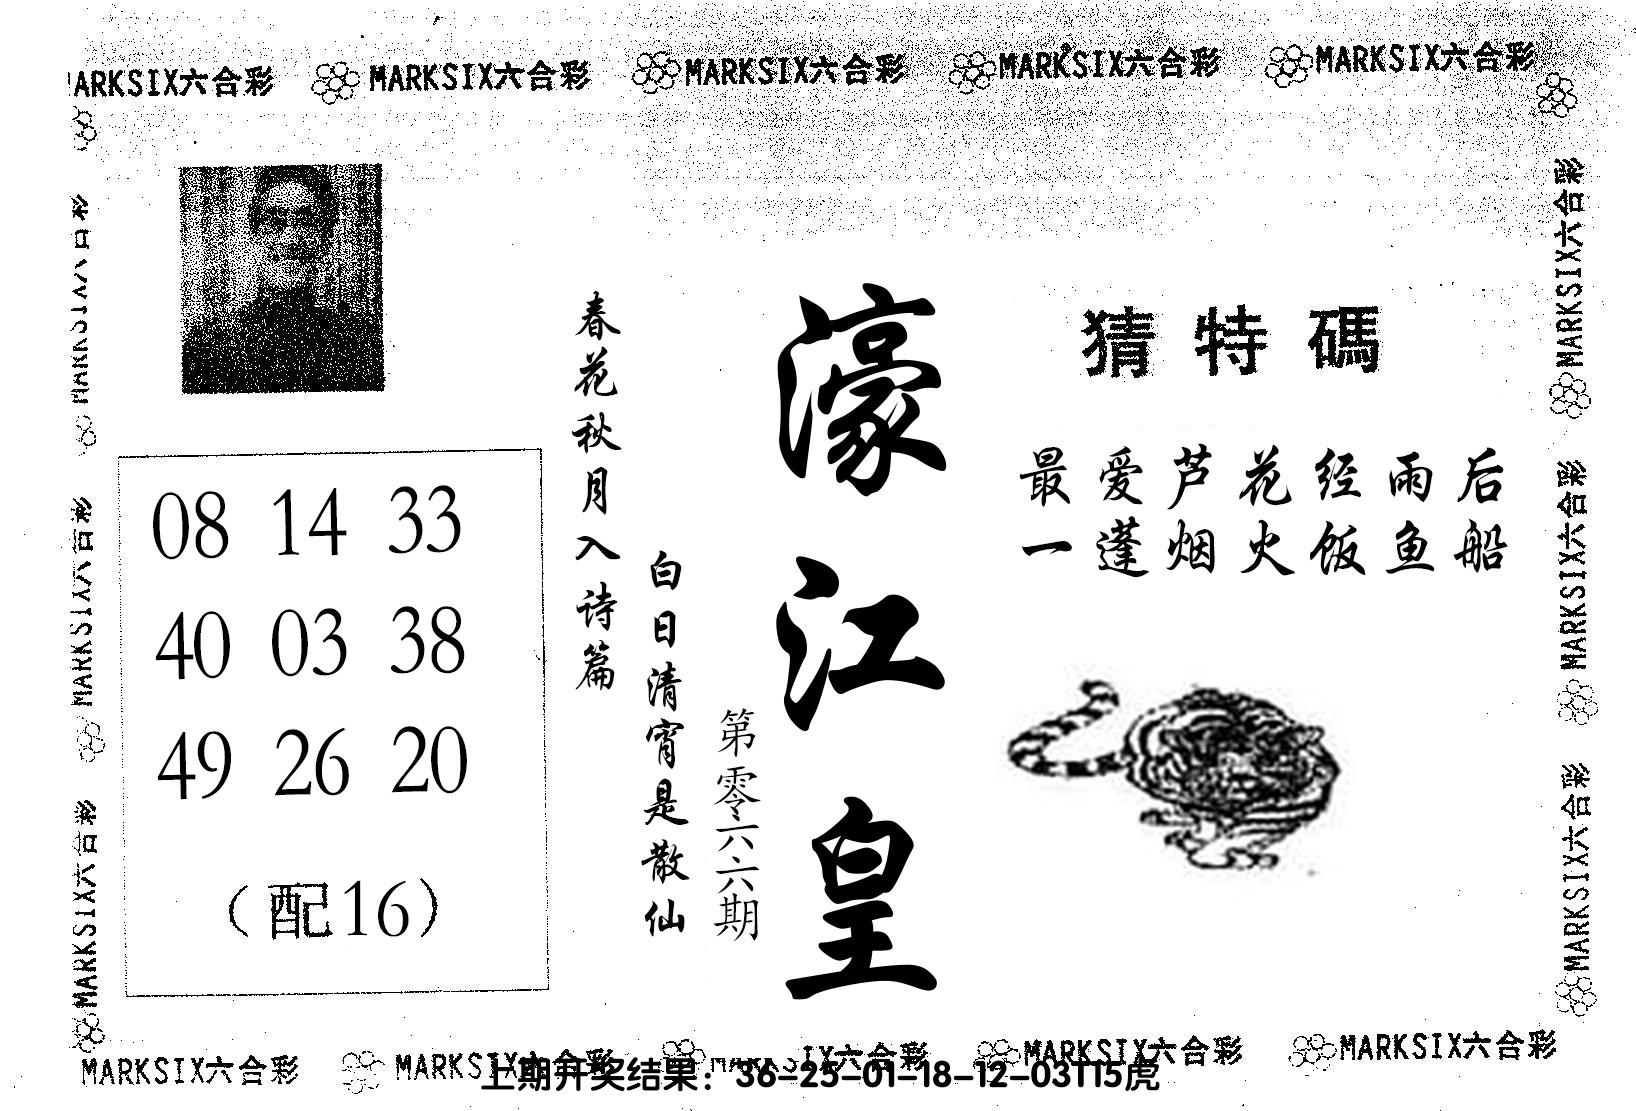 MARKSIX六合彩 MARKSIX六合彩 MARKSIX六合彩 MARKSIX六合彩
猜特碼
最爱芦花经雨后
一蓬烟火饭鱼船
濠江皇
第零六六期
春花秋月入诗篇
白日清宵是散仙
08 14 33
40 03 38
49 26 20
（配16）
MARKSIX六合彩
MARKSIX六合彩
MARKSIX六合彩
MARKSIX六合彩
MARKSIX六合彩
MARKSIX六合彩
MARKSIX六合彩 MARKSIX六合彩 MARKSIX六合彩 MARKSIX六合彩
上期开奖结果：36-25-01-18-12-03T15虎